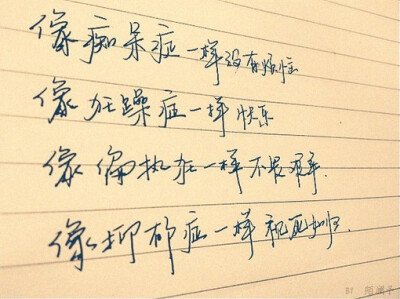 像痴呆症一样没有烦恼
像狂躁症一样快乐
像偏执狂一样不畏艰辛.
像抑郁症一样视死如归.
BY